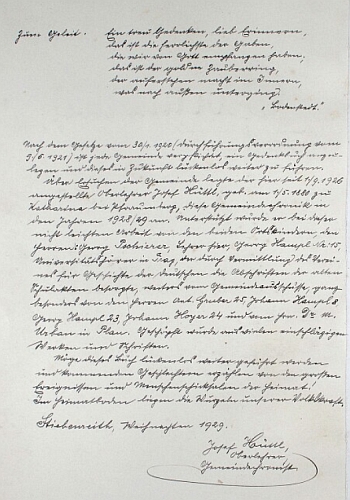 Zum Geleit. Ein treu Gedenken, lieb Erinnern,
das ist die herrlichste der Gaben,
die wir von Gott empfangen haben,
das ist der goldne Zauberring,
der auferstehen macht im Innern,
was nach außen unterging.
"Bodenstedt."
Nach dem Gesetze vom 30/1. 1920 (Durchführungsverordnung vom
9/6. 1921) ist jede Gemeinde verpflichtet, ein Gedenkbuch anzu-
legen und dasselbe in Zukunft lückenlos weiter zu führen.
Über Ersuchen der Gemeinde legte der hier seit 1/9. 1926
angestellte Oberlehrer Josef Hüttl, geb. am 1/5. 1880 zu
Katharina bei, diese Gemeindechronik in
den Jahren 1928/29 an. Unterstützt wurde er bei dieser
nicht leichten Arbeit von den beiden Ortskindern, den
Herren: Georg, Lehrer hier, Georg Hampl Nr. 15,
Universitätshörer in Prag, der durch Vermittlung des Verei-
nes für Geschichte der Deutschen die Abschriften der alten
Schulakten besorgte, weiters vom Gemeindeausschusse, ganz
besonders von den Herren Ant. Gruber 25, Johann Hampl 8
Georg Hampl 23, Johann Hoyer 24 und von Hw. Dr. M.
Urban in Plan. Geschöpft wurde aus vielen einschlägigen
Werken und Schriften.
Möge dieses Buch lückenlos weiter geführt werden
und kommenden Geschlechtern erzählen von den großen
Ereignissen und Menschenschicksalen der Heimat!
Im Heimatboden liegen die Wurzeln unserer Volkskraft.
Stiebenreith, Weihnachten 1929.
Josef Hüttl,
Oberlehrer
Gemeindechronist